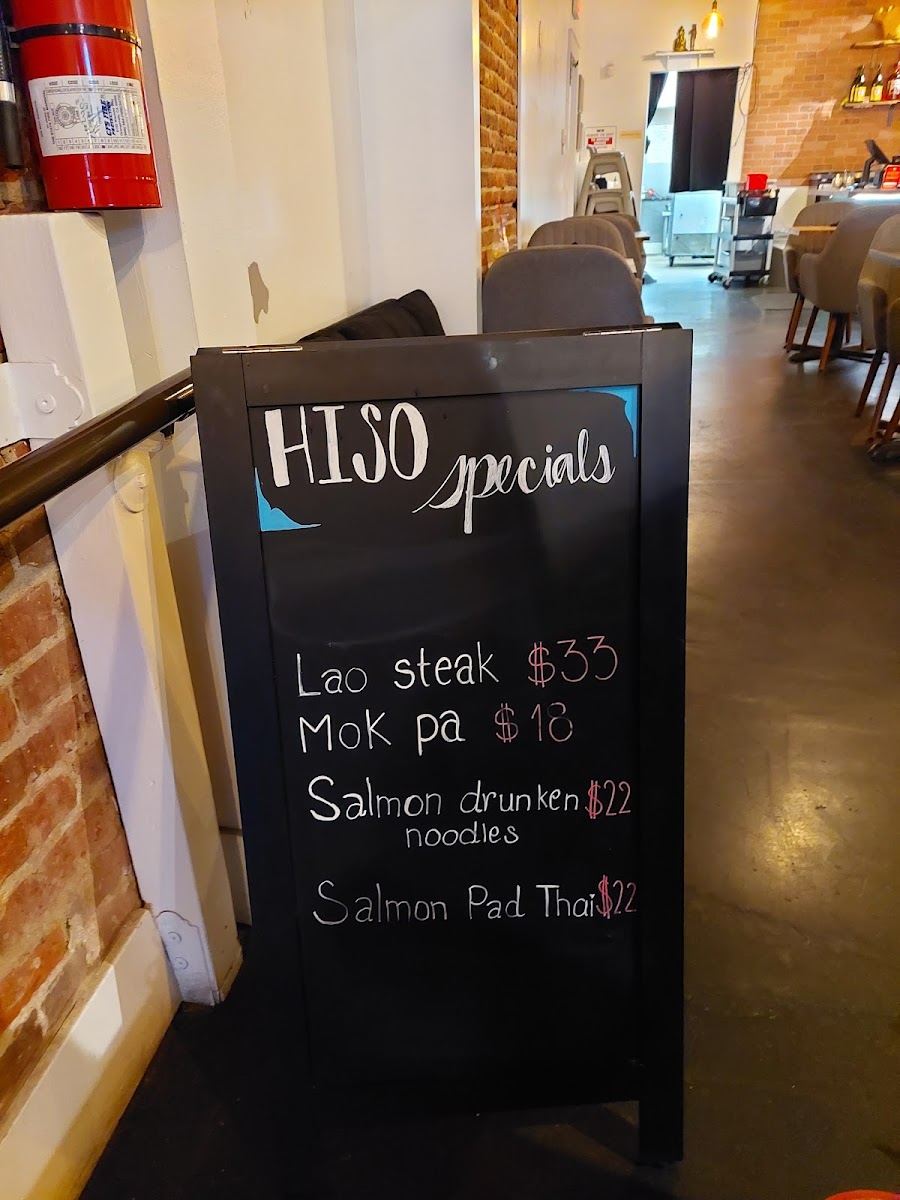 HISO specials
Lao steak $33
Mok pa $18
Salmon drunken $22
noodles
Salmon Pad Thai $22